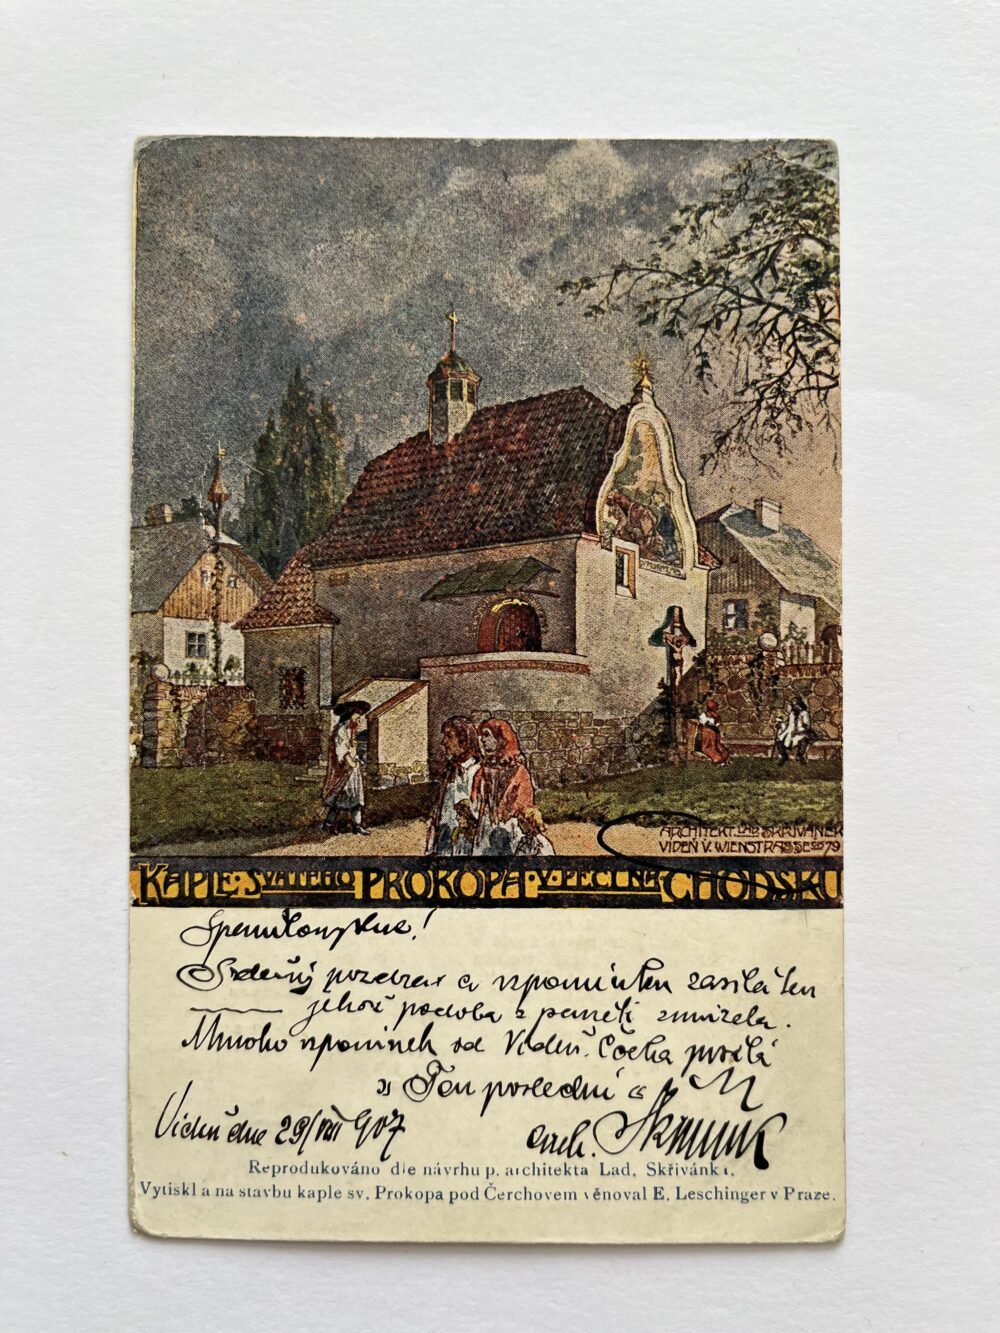 ARCHITEKT LAD SKŘIVÁNEK
VIDEŇ V. WIENSTRASSE No 79
KAPLE · SVATÉHO PROKOPA · V PECI NA CHODSKU
Srdečný pozdrav a vzpomínku zasílá ten
jehož podoba z paměti zmizela.
Mnoho vzpomínek od Vídeň. Čocha
„Ten poslední“
Vídeň dne 29/VIII 907
arch. Skřivánek
Reprodukováno dle návrhu p. architekta Lad. Skřivánka.
Vytiskl a na stavbu kaple sv. Prokopa pod Čerchovem věnoval E. Leschinger v Praze.